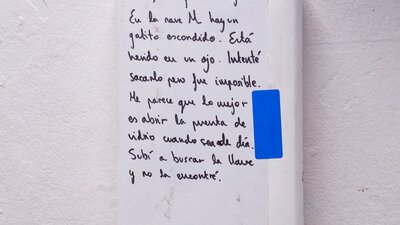 En la nave M hay un
gatito escondido. Está
herido en un ojo. Intenté
sacarlo pero fue imposible.
Me parece que lo mejor
es abrir la puerta de
vidrio cuando sea de día.
Subí a buscar la llave
y no la encontré.